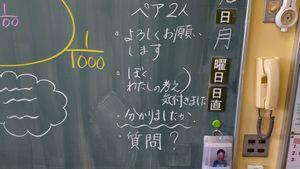 1/100
1/1000
ペア2人
・よろしくお願い
します
・ぼく
わたしの考え
気付きました
・分かりましたか
・質問?
月
日
曜日
日直